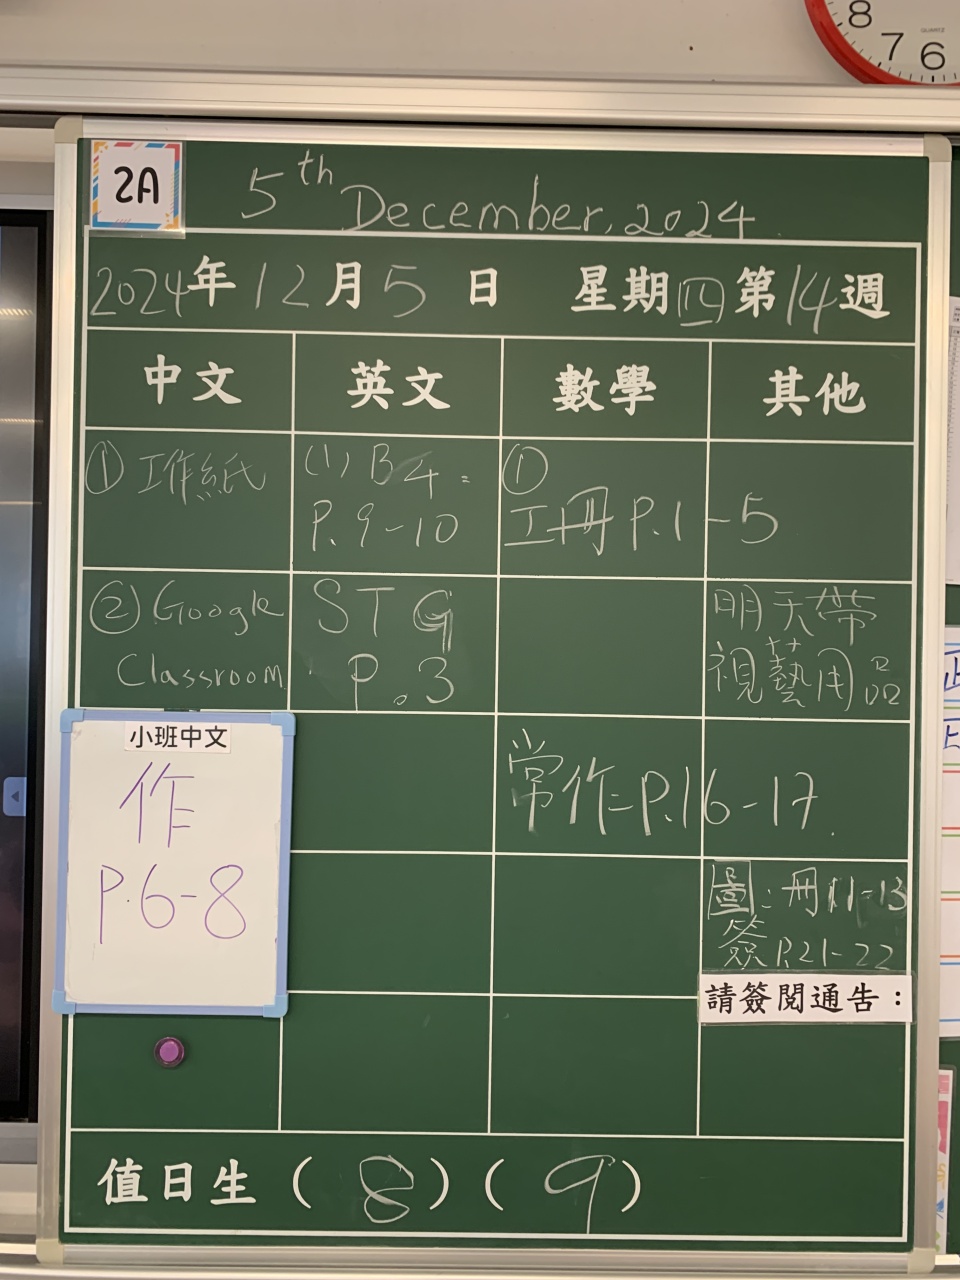 8
7
6
QUARTZ
2A
5th December, 2024
2024年12月5日 星期四第14週
中文 英文 數學 其他
①工作紙
(1) B4:
P.9-10
①
工冊P.1-5
②Google
Classroom
STG
P.3
明天帶
視藝用品
小班中文
作
P.6-8
常作=P.16-17
圖:冊P.11-13
簽P.21-22
請簽閱通告：
值日生（8）（9）